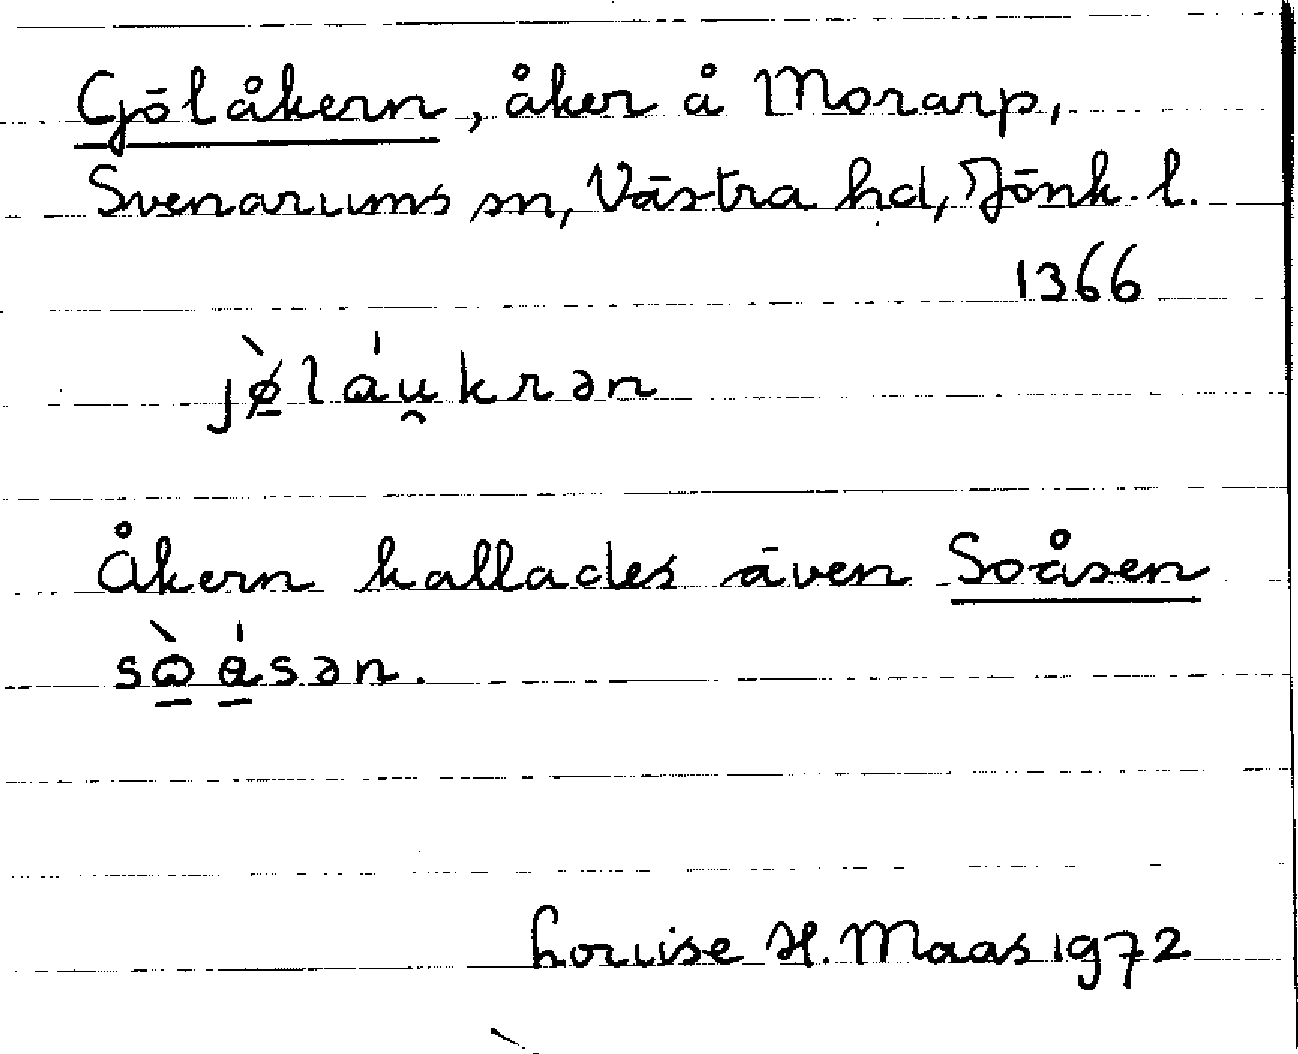 Gölåkern, åker å Morarp,
Svenarums sn, Västra hd, Jönk. l.
1366
jø̀láu̯krən
Åkern kallades även Soåsen
sòásən.
Louise H. Maas 1972